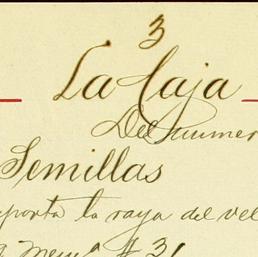 3
La Caja
Del numer
Semillas
mporta la raya del vel
g Memª # 31